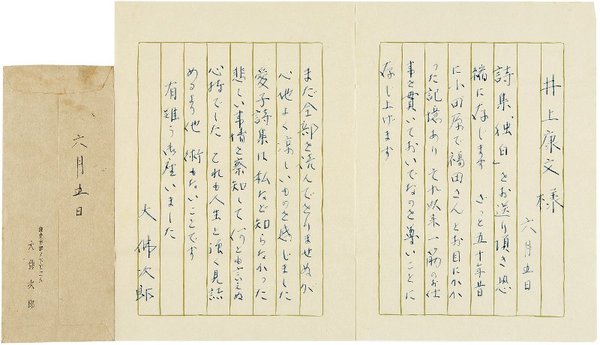 井上康文様
六月五日
詩集「独白」をお送り頂き恐
縮に存じます さっと五十年昔
に小田原で福田さんとお目にかか
った記憶あり それ以来一筋のお仕
事を貫いておいでなのを尊いことに
存し上げます
まだ全部を読んでとりませぬが
心地よく涼しいものを感じました
愛子詩集は私など知らなかった
悲しい事情を察知して 何とも云えぬ
心持でした これも人生と強く見詰
めるより他 術もないことです
有難う御座いました
大佛次郎
六月五日
大佛次郎